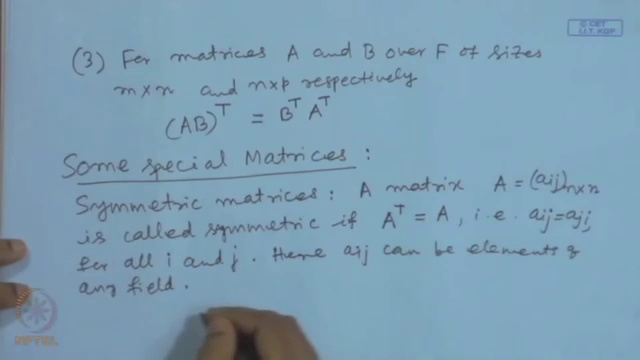 © CET
I.I.T. KGP
(3) For matrices A and B over F of sizes
m×n and n×p respectively
(AB)^T = B^T A^T
Some special Matrices :
Symmetric matrices : A matrix A = (aij)n×n
is called symmetric if A^T = A, i.e. aij = aji
for all i and j. Here aij can be elements of
any field.
NPTEL